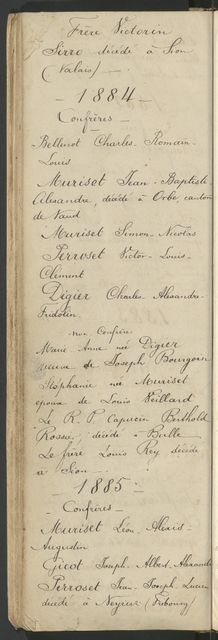 Frère Victorin
Sirro décédé à Sion
(Valais) —
— 1884 —
Confrères —
Bellenot Charles Romain-
Louis
Muriset Jean-Baptiste
Alexandre, décédé à Orbe, canton
de Vaud
Muriset Simon-Nicolas
Perroset Victor-Louis-
Clément
Digier Charles Alexandre-
Fridolin.
non Confrère
Marie Anne née Digier
veuve de Joseph Bourgoin
Stéphanie née Muriset
épouse de Louis Veillard
Le R. P. Capucin Berthold
Rossier, décédé à Bulle
Le frère Louis Rey décédé
à Sion —
— 1885 —
— Confrères —
Muriset Léon-Alexis-
Augustin
Gicot Joseph-Albert-Alexandre
Perroset Jean-Joseph-Lucien
décédé à Neyruz (Fribourg)